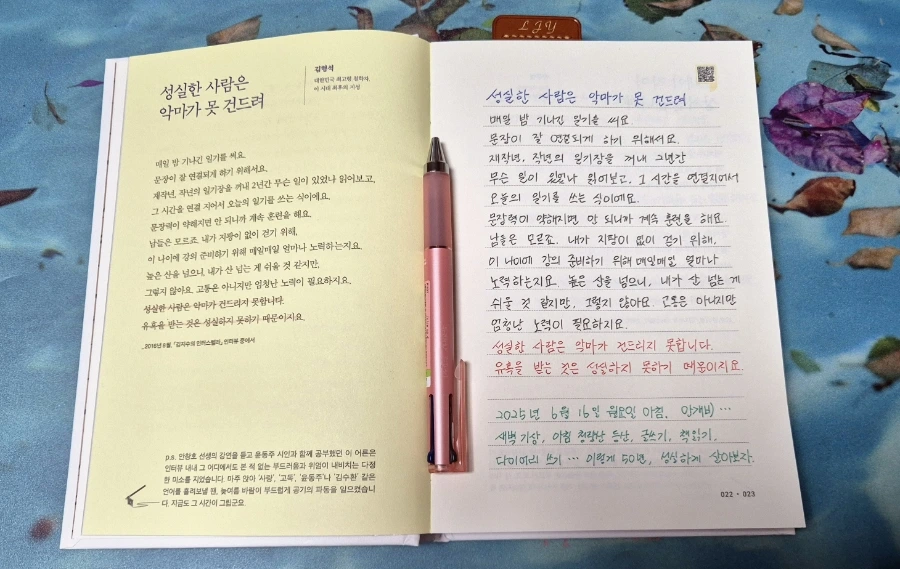 성실한 사람은
악마가 못 건드려
김형석
대한민국 최고령 철학자,
이 시대 최후의 지성
매일 밤 기나긴 일기를 써요.
문장이 잘 연결되게 하기 위해서요.
재작년, 작년의 일기장을 꺼내 2년간 무슨 일이 있었나 읽어보고,
그 시간을 연결 지어서 오늘의 일기를 쓰는 식이에요.
문장력이 약해지면 안 되니까 계속 훈련을 해요.
남들은 모르죠. 내가 지팡이 없이 걷기 위해,
이 나이에 강의 준비하기 위해 매일매일 얼마나 노력하는지요.
높은 산을 넘으니, 내가 산 넘는 게 쉬울 것 같지만,
그렇지 않아요. 고통은 아니지만 엄청난 노력이 필요하지요.
성실한 사람은 악마가 건드리지 못합니다.
유혹을 받는 것은 성실하지 못하기 때문이지요.
_2018년 8월, 「김지수의 인터스텔라」 인터뷰 중에서
p.s. 안창호 선생의 강연을 듣고 윤동주 시인과 함께 공부했던 이 어른은
인터뷰 내내 그 어디에서도 본 적 없는 부드러움과 위엄이 내비치는 다정
한 미소를 지었습니다. 마주 앉아 '사랑', '고독', '윤동주'나 '김수환' 같은
언어를 흘려보낼 땐, 높이름 바람이 부드럽게 공기의 파동을 일으켰습니
다. 지금도 그 시간이 그립군요.
성실한 사람은 악마가 못 건드려
매일 밤 기나긴 일기를 써요.
문장이 잘 연결되게 하기 위해서요.
재작년, 작년의 일기장을 꺼내 2년간
무슨 일이 있었나 읽어보고, 그 시간을 연결지어서
오늘의 일기를 쓰는 식이에요.
문장력이 약해지면 안 되니까 계속 훈련을 해요.
남들은 모르죠. 내가 지팡이 없이 걷기 위해,
이 나이에 강의 준비하기 위해 매일매일 얼마나
노력하는지요. 높은 산을 넘으니, 내가 산 넘는 게
쉬울 것 같지만, 그렇지 않아요. 고통은 아니지만
엄청난 노력이 필요하지요.
성실한 사람은 악마가 건드리지 못합니다.
유혹을 받는 것은 성실하지 못하기 때문이지요.
2025년 6월 16일 월요일 아침, 안개비 …
새벽 기상, 아침 청량산 등산, 글쓰기, 책읽기,
다이어리 쓰기 … 이렇게 50년, 성실하게 살아보자.
022 • 023